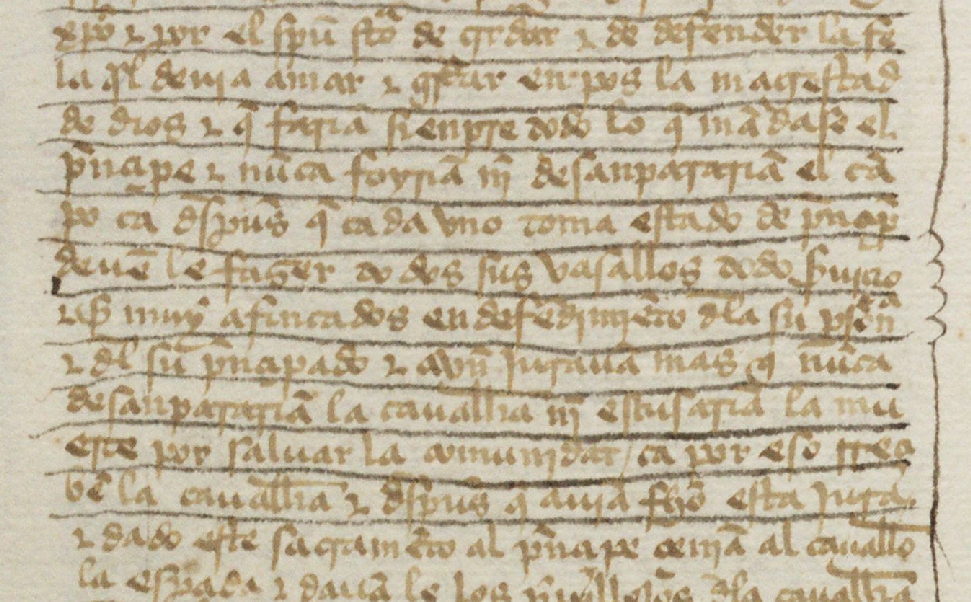 xpo & por el spu sto de grdar & de defender la fe
la ql deuia amar & grdar en pos la magestad
de dios & q faria sienpre todo lo q mãdase el
pncipe & nũca foyriã nj̃ desanparariã el cã
po ca dspus q cada vno toma estado de pncipe
deuẽ le fazer todos sus vasallos todo suicio
& ser muy afincados en defẽdimjẽto dla su psona
& dl su pncipado & avn juraua mas q nũca
desanpararia la caualleria nj̃ escusaria la mu
erte por saluar la comunjdat / ca por eso rreç
bẽ la caualleria & dspus q auia fho esta jura
& dado este sacramẽto al pncipe çeniã al cauallo
la espada & dauã le los preuillegios dla caualleria